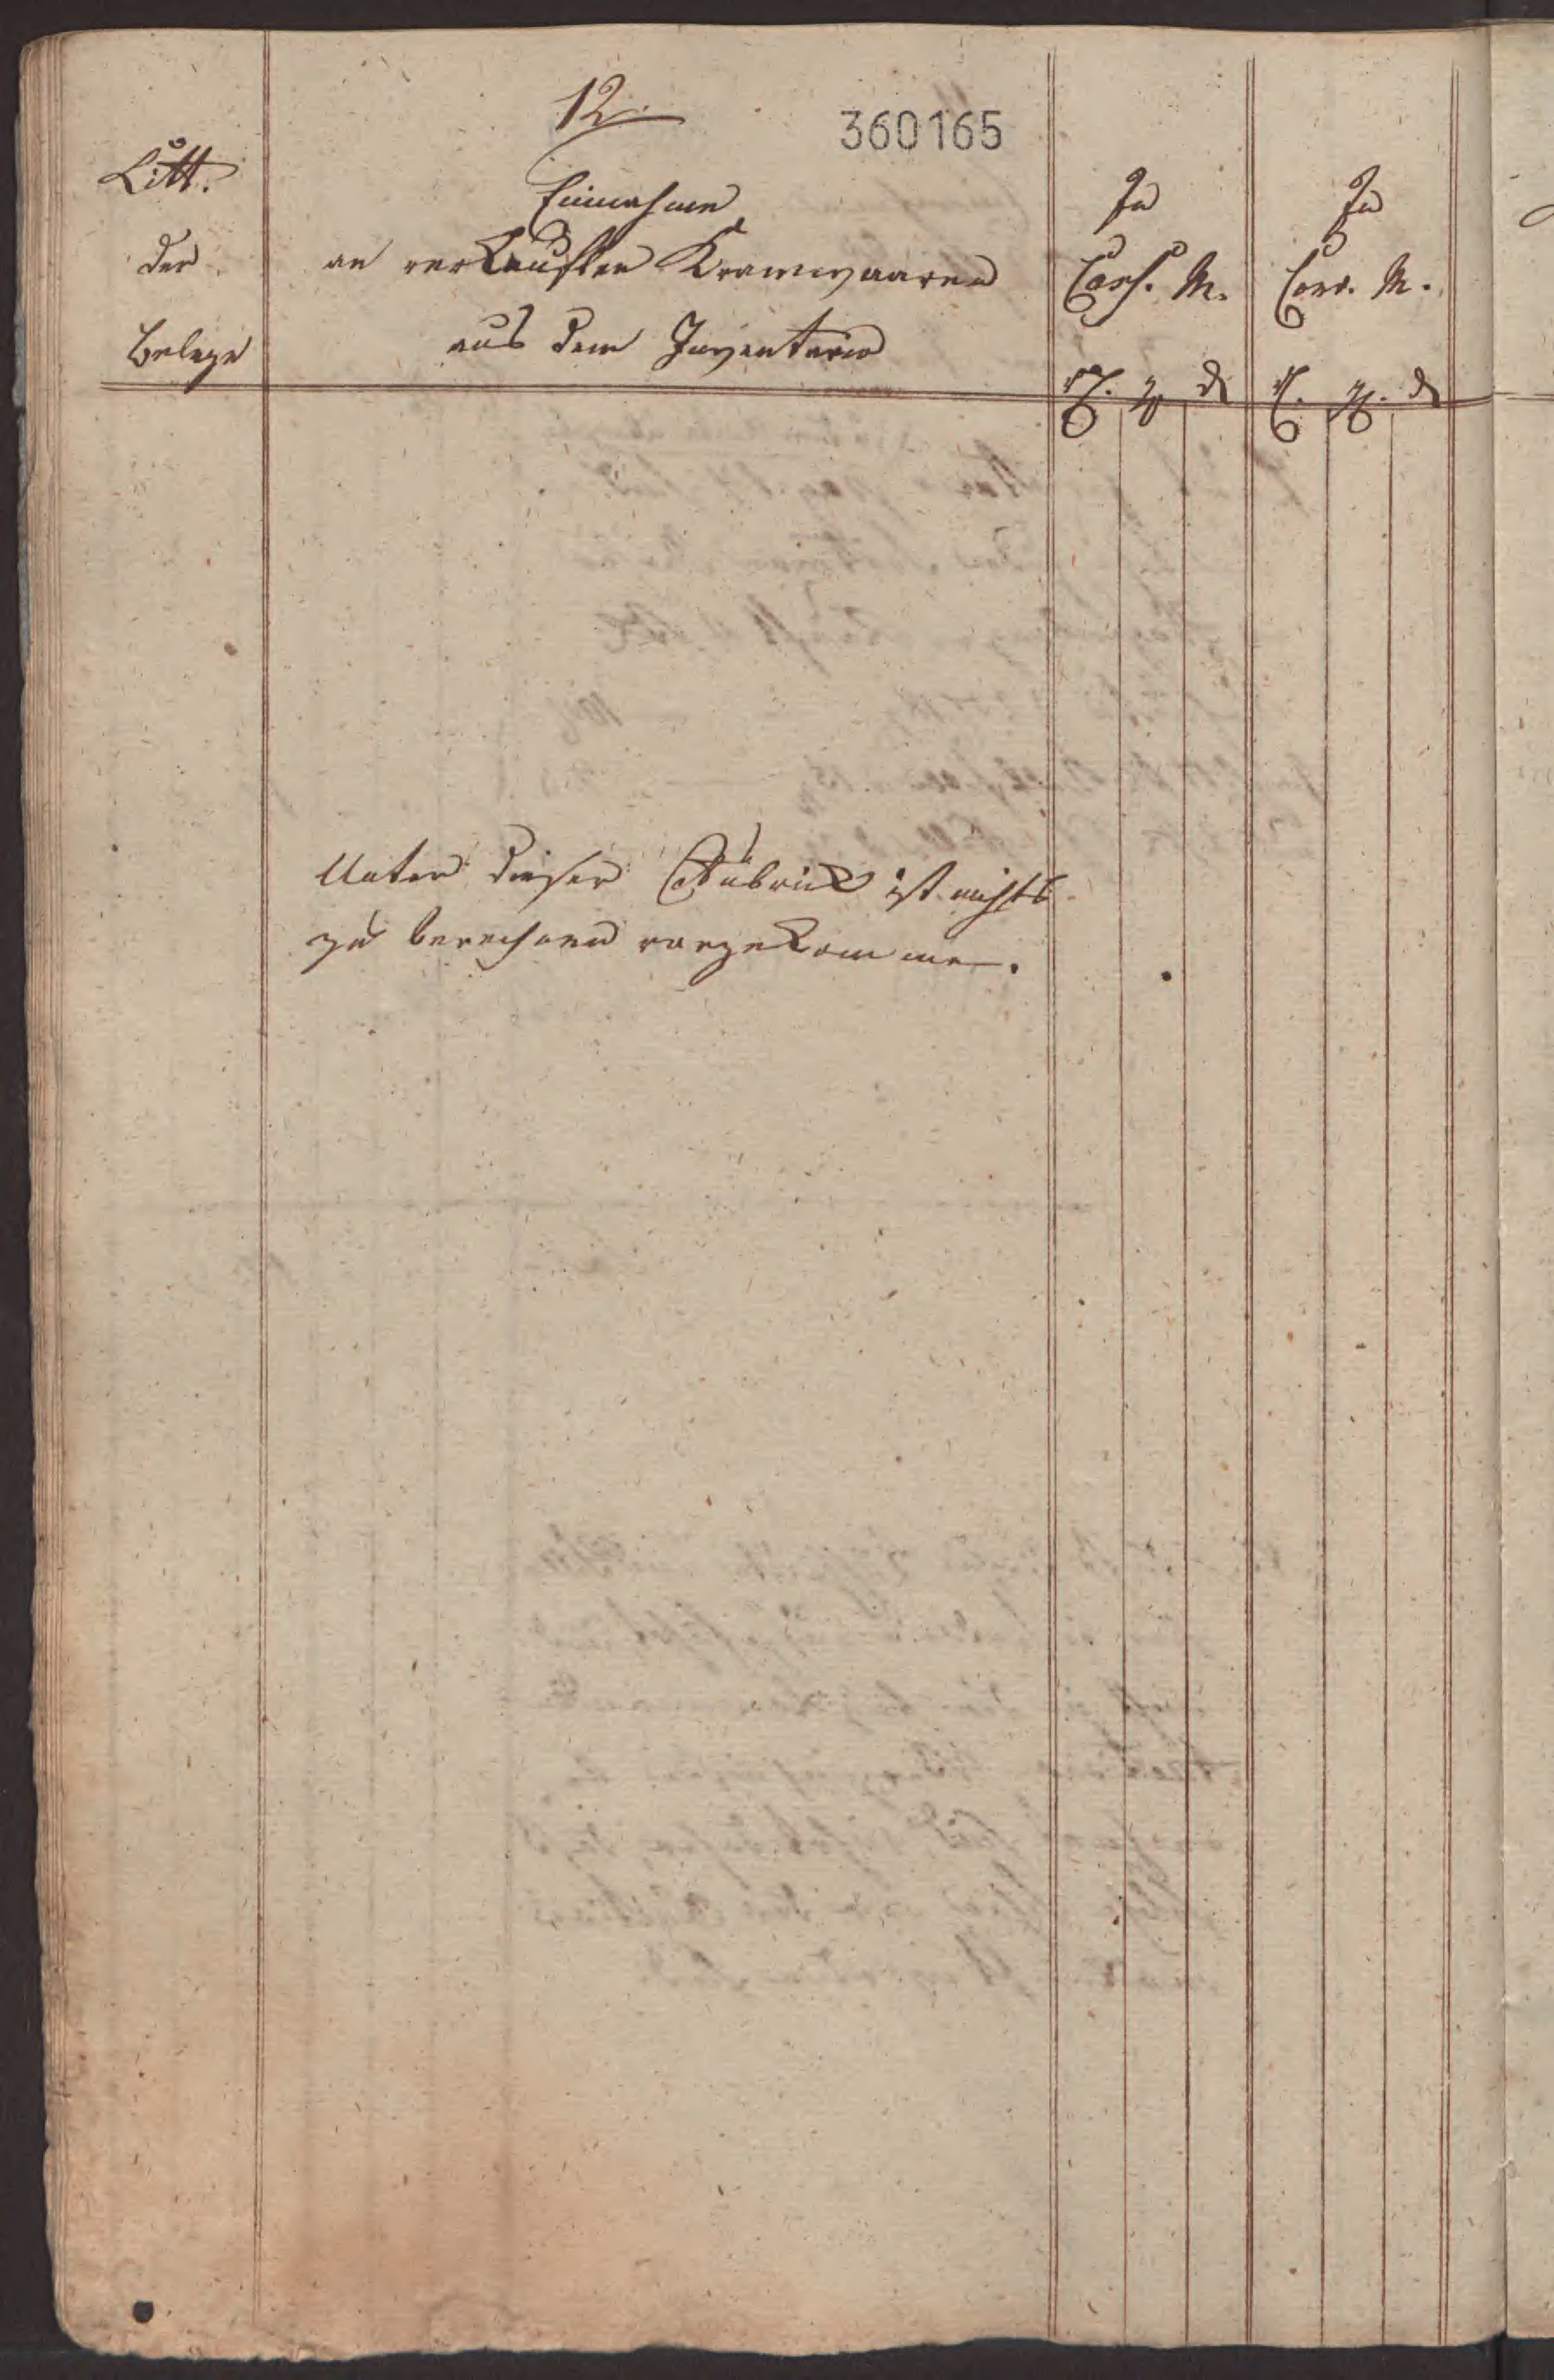 12.
360165
Litt.
der
Belege
Einnahme
an verkauften Kramwaaren
aus dem Inventario
In
Cass. M.
In
Conv. M.
Unter dieser Rubrick ist nichts
zu berechnen vorgekommen.